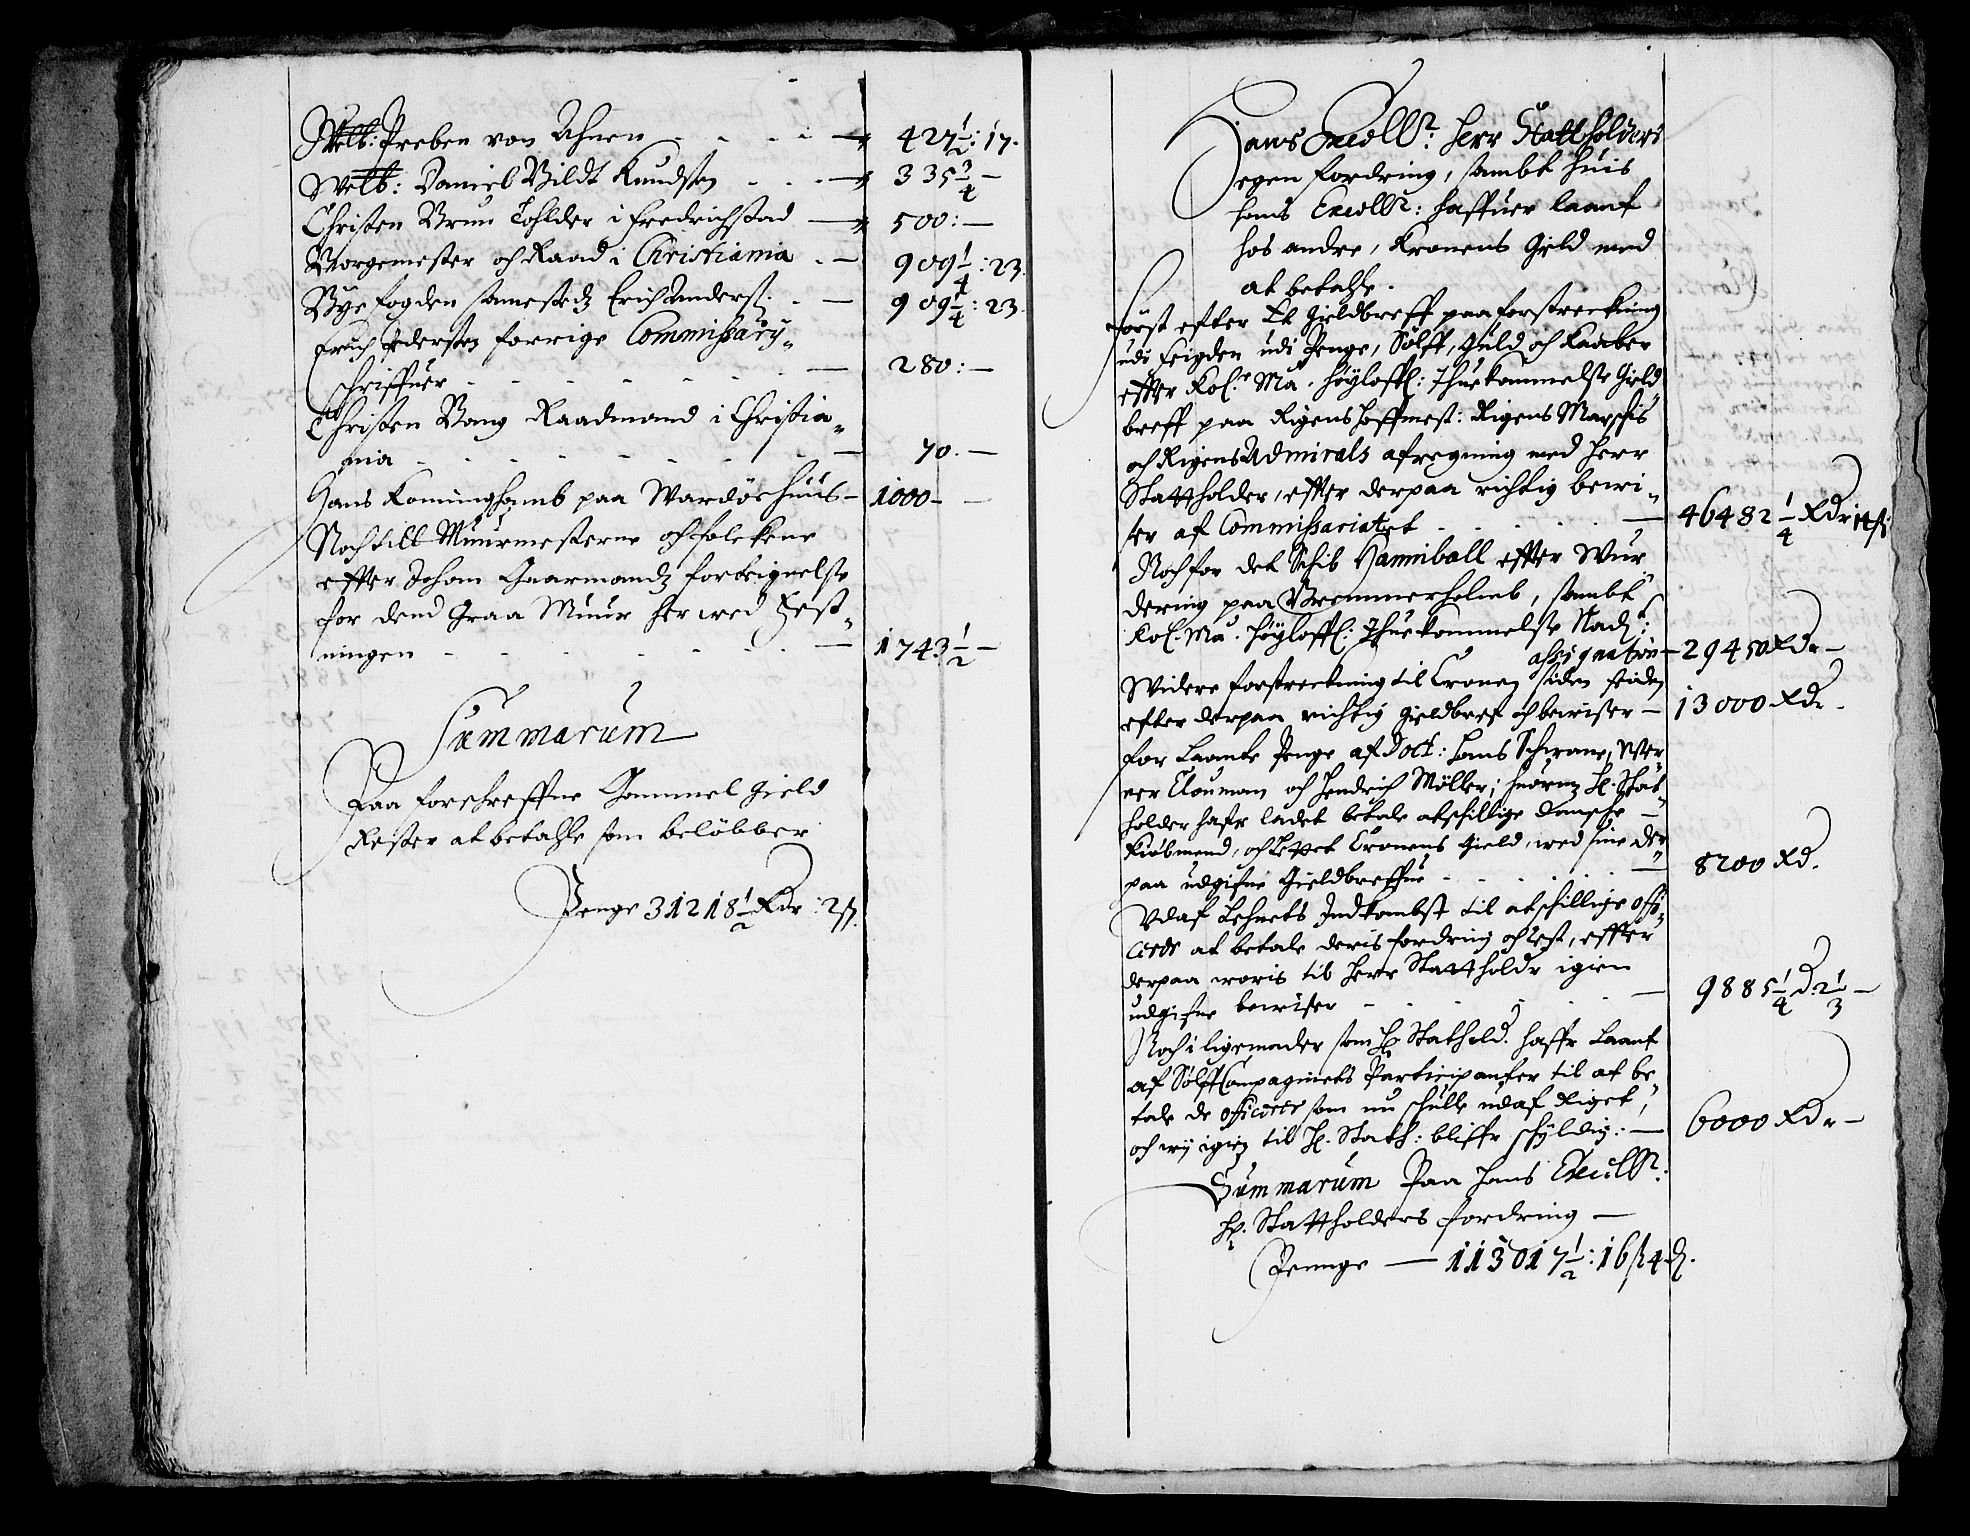 Welb: Preben von Ahnen - - - - 427½: 17.
Welb: Daniel Bildt Knudsen - - - 335¾ -
Christen Brun Tohlder i Fredrichstad - 500: -
Borgemester och Raad i Christiania . - 909¼: 23.
Bye fogden samestedz Erich Anders: . - 909¼: 23.
Pedersen forrige Commissary,,
schriffuer - - - - - - - 280: -
Christen Bang Raadmand i Christia,,
nia - - - - - - - 70. -
Hans Koninghamb paa Wardøehuus - 1000 - -
Noch till Muurmesterne och folckene
effter Johan Gaarmandz fortegnelse
for dend Graa Muur her wed Fest,,
ningen - - - - - - 1743½ -
Summarum
Paa foreschreffne Gammel Gield
Rester at betahle som beløbber
Penge 31218½ Rdr: 2 ß.
Hans Excell: Herr Stattholders
egen fordring, sambt huis
hans Excell: haffuer laant
hos andre, Kronens Gield med
at betahle.
Først efter Et Gieldbreff paa forstreckning
udi feigden udi Penge, Sølff, Guld och Kaaber
effter Kol. Ma. høyloffl: Ihuekommelse Gield,,
breff paa Rigens Hoffmest: Rigens Marschis
och Rigens Admirals afregning med Herr
Stattholder, effter derpaa richtig bewi,,
ser af Commissariatet - - - - - 46482¼ Rdr 14 ß
Noch for det Schib Hanniball effter Wur,,
dering paa Bremmerholmb, sambt
Kol. Ma. høyloffl: Ihuekommelse Nad:
assignation - 29450 Rdr -
Widere forstreckning til Cronen siden feiden
efter derpaa richtig gieldbref och bewiser - 13000 Rdr -
for Laante Penge af Doct: Hans Schwane, Wer,,
ner Clouman och Hendrich Møller; huormz H. Stat,,
holder hafr ladet betale atschillige Dansche -
Kiøbmend, och lettet Cronens Gield, med sine der,,
paa udgifne Gieldbreffue - - - - 8200 Rd.
Udaf Lehnets Indkombst til atschillige offi,,
cerer at betale deris fordring och rest, effter
derpaa woris til Herr Stattholdr igien
udgifne bewiser - - - - - 9885¼ D. 2⅓ -
Noch i ligemaader som H. Stathold. haffr Laant
af Sølff Compagniets Participanter til at be,,
tale de officerer som nu schulle udaf Riget,
och wy igien til H. Stath: bliffr schyldig: - 6000 Rdr -
Summarum Paa Hans Excell:
Hr. Stattholders fordring -
Pennge - 113017½: 16 ß 4 d.